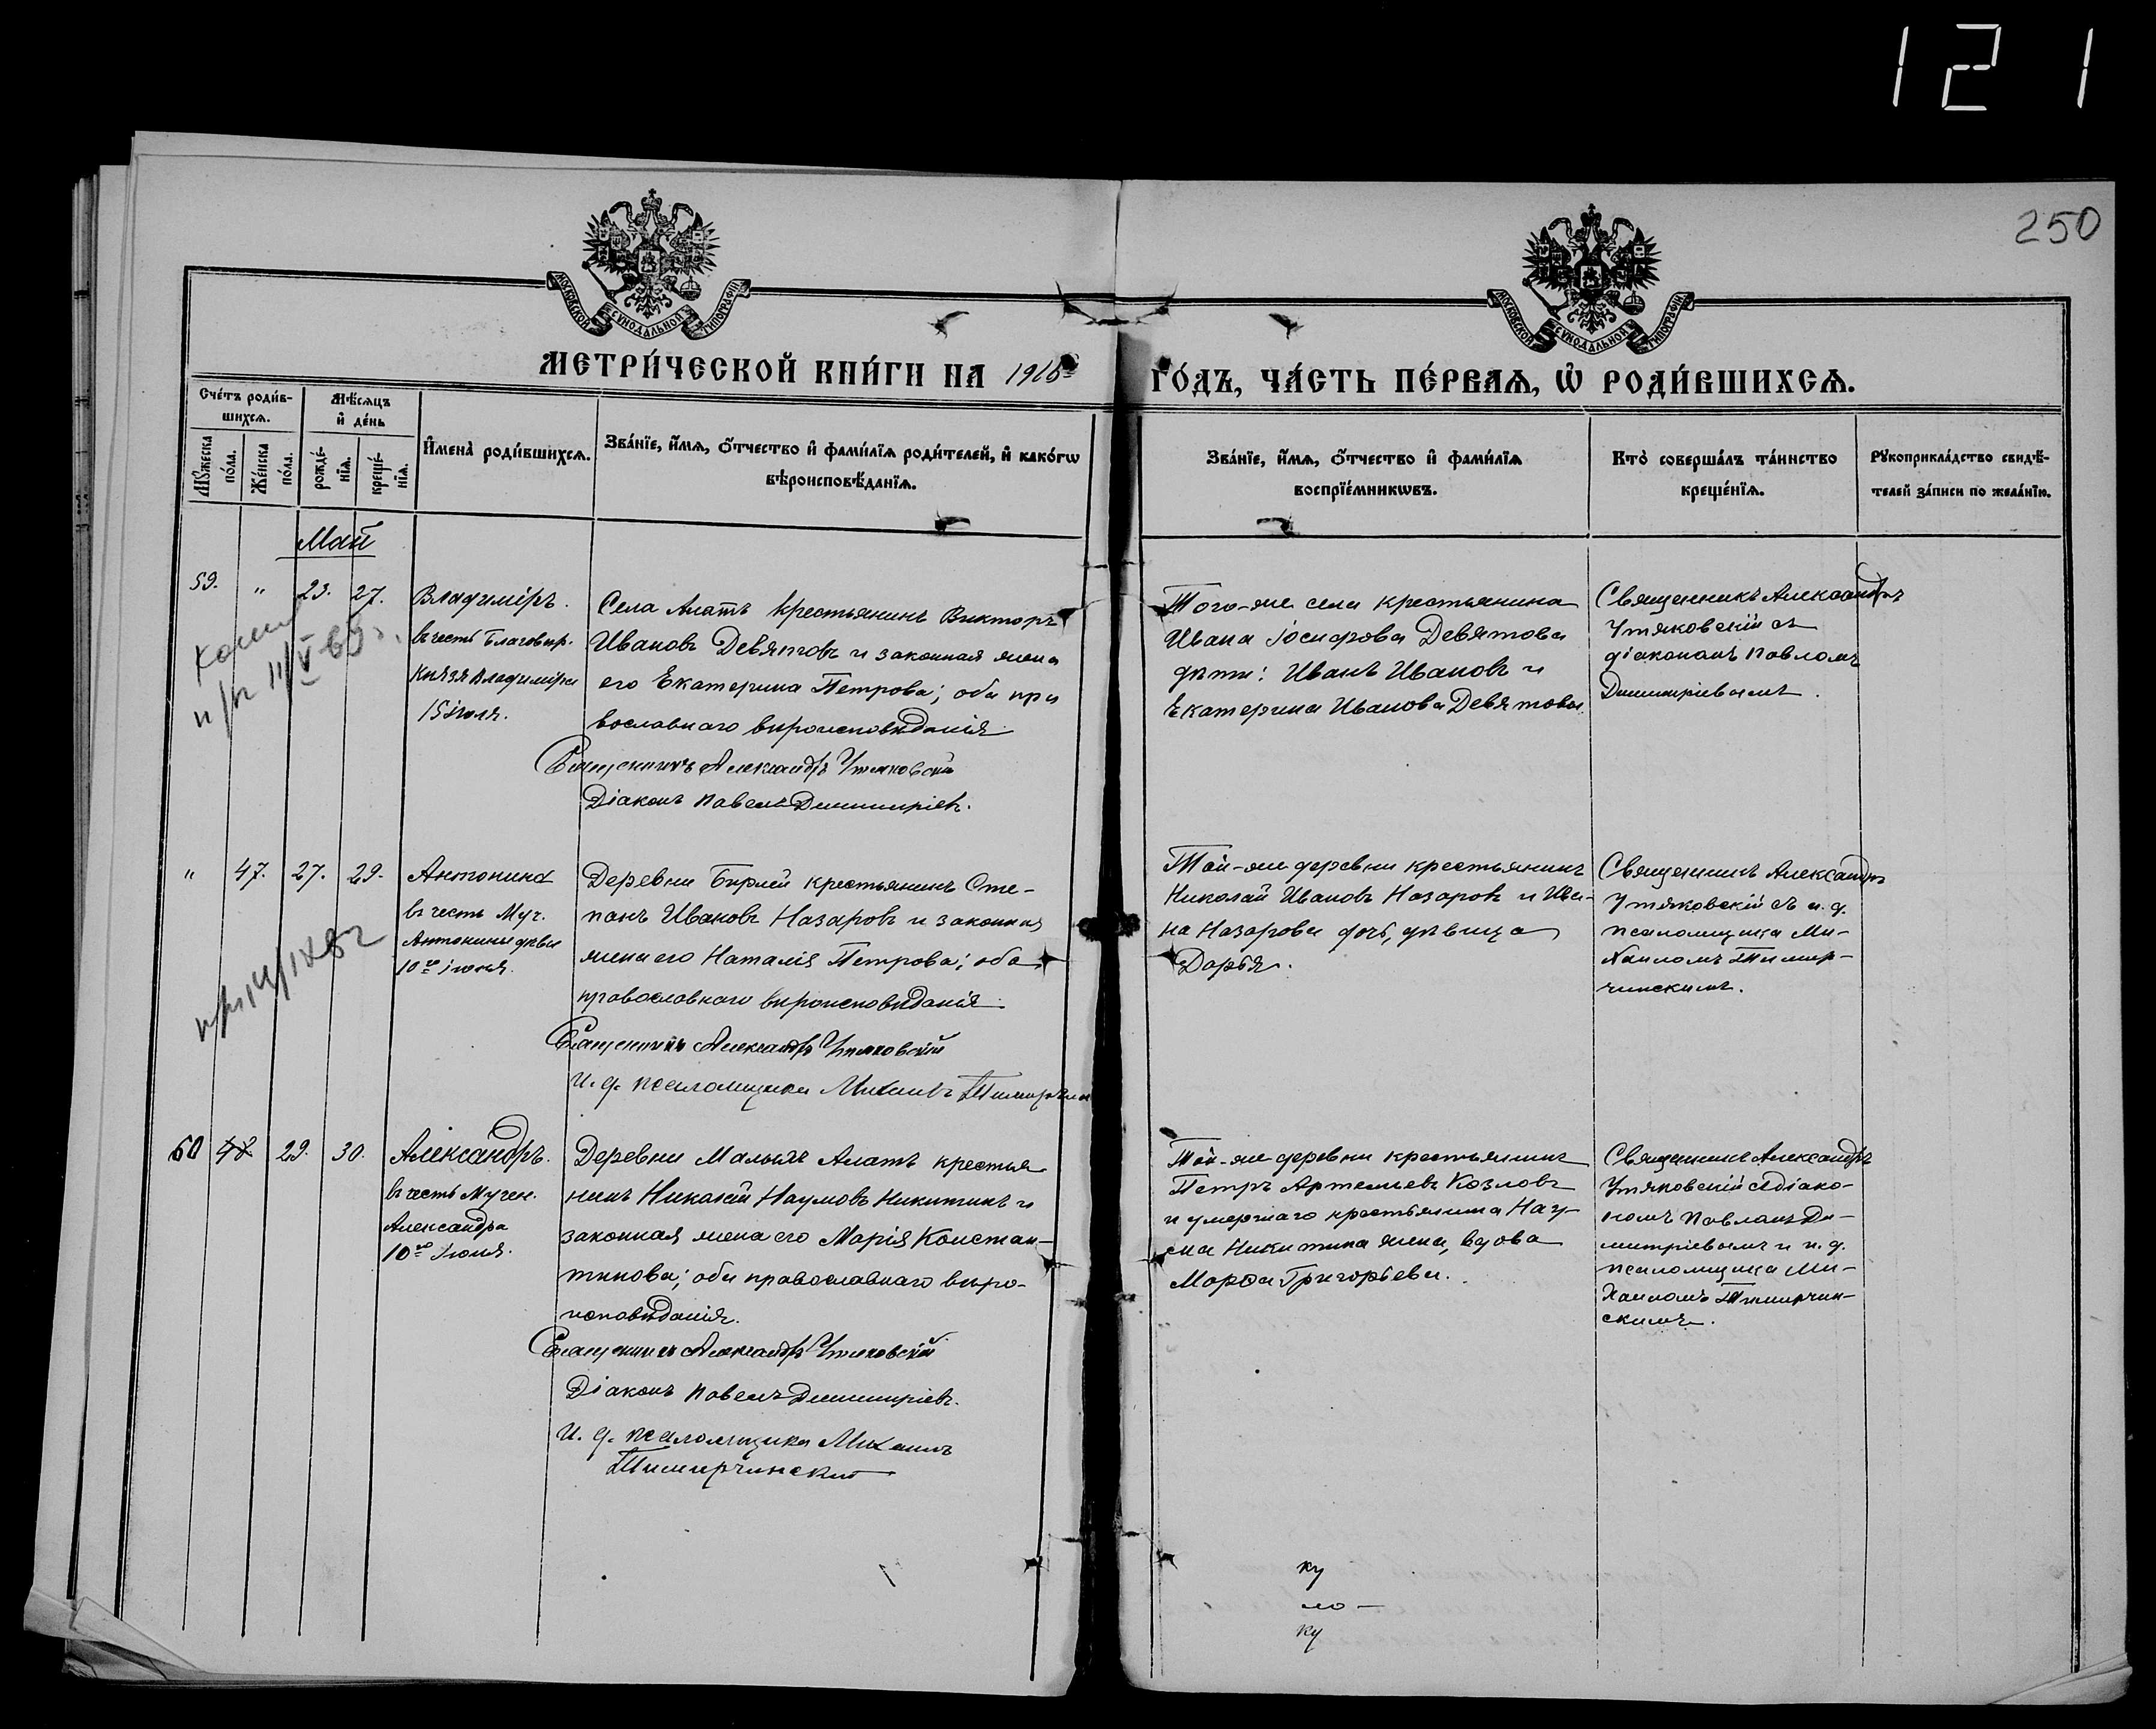 121
250
МОСКОВСКОЙ СѴНОДАЛЬНОЙ ТИПОГРАФІИ
МОСКОВСКОЙ СѴНОДАЛЬНОЙ ТИПОГРАФІИ
МЕТРИ́ЧЕСКОЙ КНИ́ГИ НА 1918 ГО́ДЪ, ЧА́СТЬ ПЕ́РВАѦ, Ѡ҆ РОДИ́ВШИХСѦ.
Сче́тъ роди́в-
шихсѧ.
Мѣ́сѧцъ
и҆ де́нь
Мꙋ́жеска
по́ла.
Же́нска
по́ла.
рожде́-
нїѧ.
креще́-
нїѧ.
И҆мена̀ роди́вшихсѧ.
Зва́нїе, и҆́мѧ, ѻ҆́тчество и҆ фами́лїѧ роди́телей, и҆ како́гѡ
вѣроисповѣ́данїѧ.
Зва́нїе, и҆́мѧ, ѻ҆́тчество и҆ фами́лїѧ
воспрїе́мникѡвъ.
Кто̀ соверша́лъ та́инство
креще́нїѧ.
Рꙋкоприкла́дство свидѣ́-
телей за́писи по жела́нїю.
Май
59. " 23. 27.
Владиміръ.
въ честь Благовѣр.
Князя Владиміра
15 іюля.
Села Алатъ крестьянинъ Викторъ
Ивановъ Девятовъ и законная жена
его Екатерина Петрова; оба пра
вославнаго вѣроисповѣданія
Священникъ Александръ Утяковскій
Діаконъ Павелъ Димитріевъ.
Того-же села крестьянина
Ивана Іосифова Девятова
дѣти: Иванъ Ивановъ и
Екатерина Иванова Девятовы.
Священникъ Александръ
Утяковскій съ
діакономъ Павломъ
Димитріевымъ.
п/п 11/V-69г.
" 47. 27. 29.
Антонина
въ честь Муч.
Антонины дѣвы
10го іюня.
Деревни Бирлей крестьянинъ Сте-
панъ Ивановъ Назаровъ и законная
жена его Наталія Петрова; оба
православнаго вѣроисповѣданія
Священникъ Александръ Утяковскій
И. д. псаломщика Михаилъ
Той-же деревни крестьянинъ
Николай Ивановъ Назаровъ и Ива-
на Назарова дочь, дѣвица
Дарья.
Священникъ Александръ
Утяковскій съ и. д.
псаломщика Ми-
хаиломъ Тимир-
чинскимъ.
60 48 29. 30.
Александръ.
въ честь Мучен.
Александра
10го Іюня.
Деревни Малыхъ Алатъ крестья
нинъ Николай Наумовъ Никитинъ и
законная жена его Марія Констан-
тинова; оба православнаго вѣро-
исповѣданія.
Священникъ Александръ Утяковскій
Діаконъ Павелъ Димитріевъ.
И. д. псаломщика Михаилъ
Тимирчинскій
Той-же деревни крестьянинъ
Петръ Артемьевъ Козловъ
и умершаго крестьянина Нау-
ма Никитина жена, вдова
Марѳа Григорьева.
Священникъ Александръ
Утяковскій съ діако-
номъ Павломъ Ди-
митріевымъ и и. д.
псаломщика Ми-
хаиломъ Тимирчин-
скимъ.
ку
ло-
ку